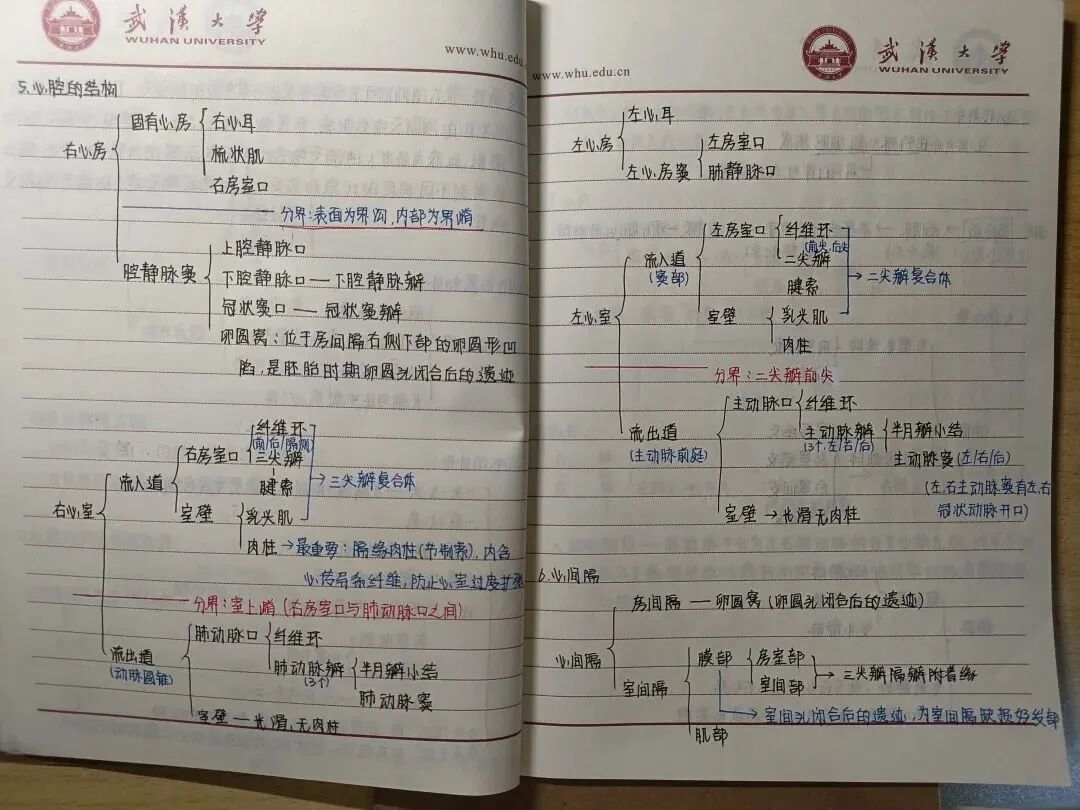 武漢大學
WUHAN UNIVERSITY
www.whu.edu.
5.心腔的结构
右心房
固有心房
右心耳
梳状肌
右房室口
分界:表面为界沟,内部为界嵴
腔静脉窦
上腔静脉口
下腔静脉口——下腔静脉瓣
冠状窦口——冠状窦瓣
卵圆窝:位于房间隔右侧下部的卵圆形凹
陷,是胚胎时期卵圆孔闭合后的遗迹
右心室
流入道
右房室口
纤维环
(前/后/隔侧)
三尖瓣
腱索
→三尖瓣复合体
室壁
乳头肌
肉柱→最重要:隔缘肉柱(节制索),内含
心传导系纤维,防止心室过度扩张
分界:室上嵴(右房室口与肺动脉口之间)
流出道
(动脉圆锥)
肺动脉口
纤维环
肺动脉瓣
(3个)
半月瓣小结
肺动脉窦
室壁—光滑,无肉柱
www.whu.edu.cn
武漢大學
WUHAN UNIVERSITY
左心房
左心耳
左心房窦
左房室口
肺静脉口
左心室
流入道
(窦部)
左房室口
纤维环
(前尖,后尖)
二尖瓣
腱索
→二尖瓣复合体
室壁
乳头肌
肉柱
分界:二尖瓣前尖
流出道
(主动脉前庭)
主动脉口
纤维环
主动脉瓣
(3个,左/右/后)
半月瓣小结
主动脉窦(左/右/后)
(左、右主动脉窦有左、右
冠状动脉开口)
室壁→光滑无肉柱
6.心间隔
心间隔
房间隔——卵圆窝(卵圆孔闭合后的遗迹)
室间隔
膜部
房室部
室间部
→三尖瓣隔瓣附着缘
→室间孔闭合后的遗迹,为室间隔缺损好发部
肌部